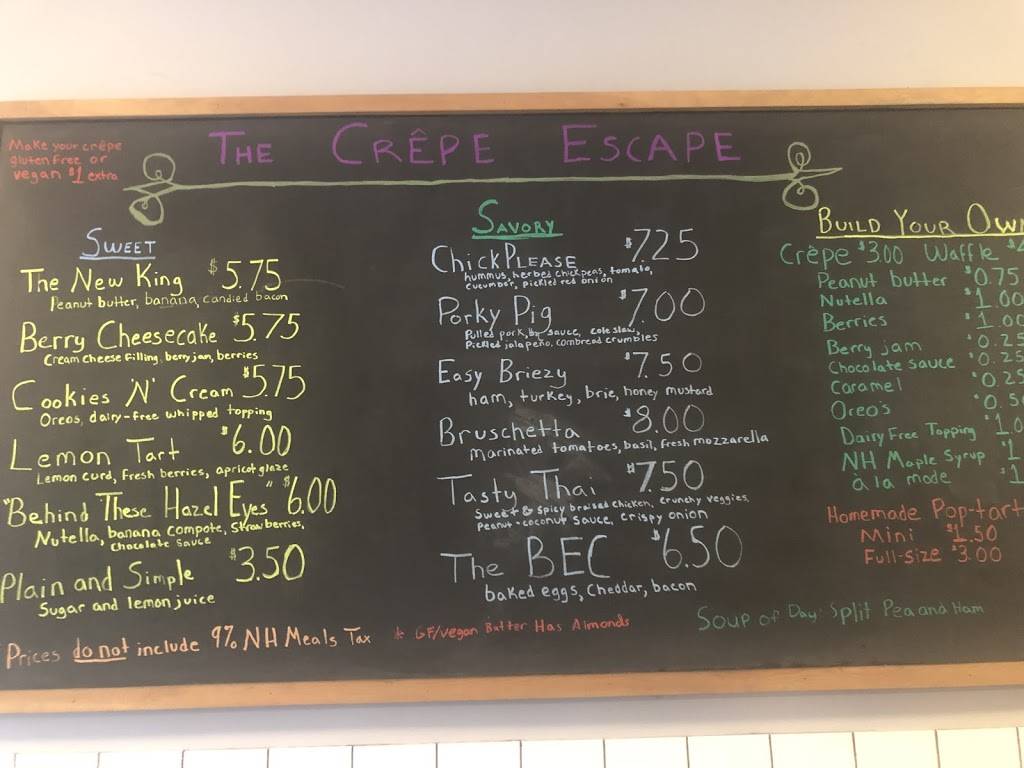 THE CRÊPE ESCAPE
Make your crêpe
gluten free or
vegan $1 extra
SWEET
The New King $5.75
Peanut butter, banana, candied bacon
Berry Cheesecake $5.75
Cream cheese filling, berry jam, berries
Cookies 'N' Cream $5.75
Oreos, dairy-free whipped topping
Lemon Tart $6.00
Lemon curd, fresh berries, apricot glaze
"Behind These Hazel Eyes" $6.00
Nutella, banana compote, strawberries,
chocolate sauce
Plain and Simple $3.50
Sugar and lemon juice
SAVORY
ChickPLEASE $7.25
hummus, herbed chickpeas, tomato,
cucumber, pickled red onion
Porky Pig $7.00
Pulled pork, BBQ sauce, coleslaw,
Pickled jalapeño, cornbread crumbles
Easy Briezy $7.50
ham, turkey, brie, honey mustard
Bruschetta $8.00
Marinated tomatoes, basil, fresh mozzarella
Tasty Thai $7.50
Sweet & spicy braised chicken, crunchy veggies,
Peanut-coconut sauce, crispy onion
The BEC $6.50
baked eggs, Cheddar, bacon
BUILD YOUR OWN
Crêpe $3.00 Waffle $4
Peanut butter $0.75
Nutella $1.00
Berries $1.00
Berry jam $0.25
Chocolate sauce $0.25
Caramel $0.25
Oreo's $0.50
Dairy Free Topping $1.0
NH Maple Syrup $1
à la mode $1
Homemade Pop-tart
Mini $1.50
Full-Size $3.00
Soup of Day: Split Pea and Ham
Prices do not include 9% NH Meals Tax
* GF/Vegan Batter Has Almonds